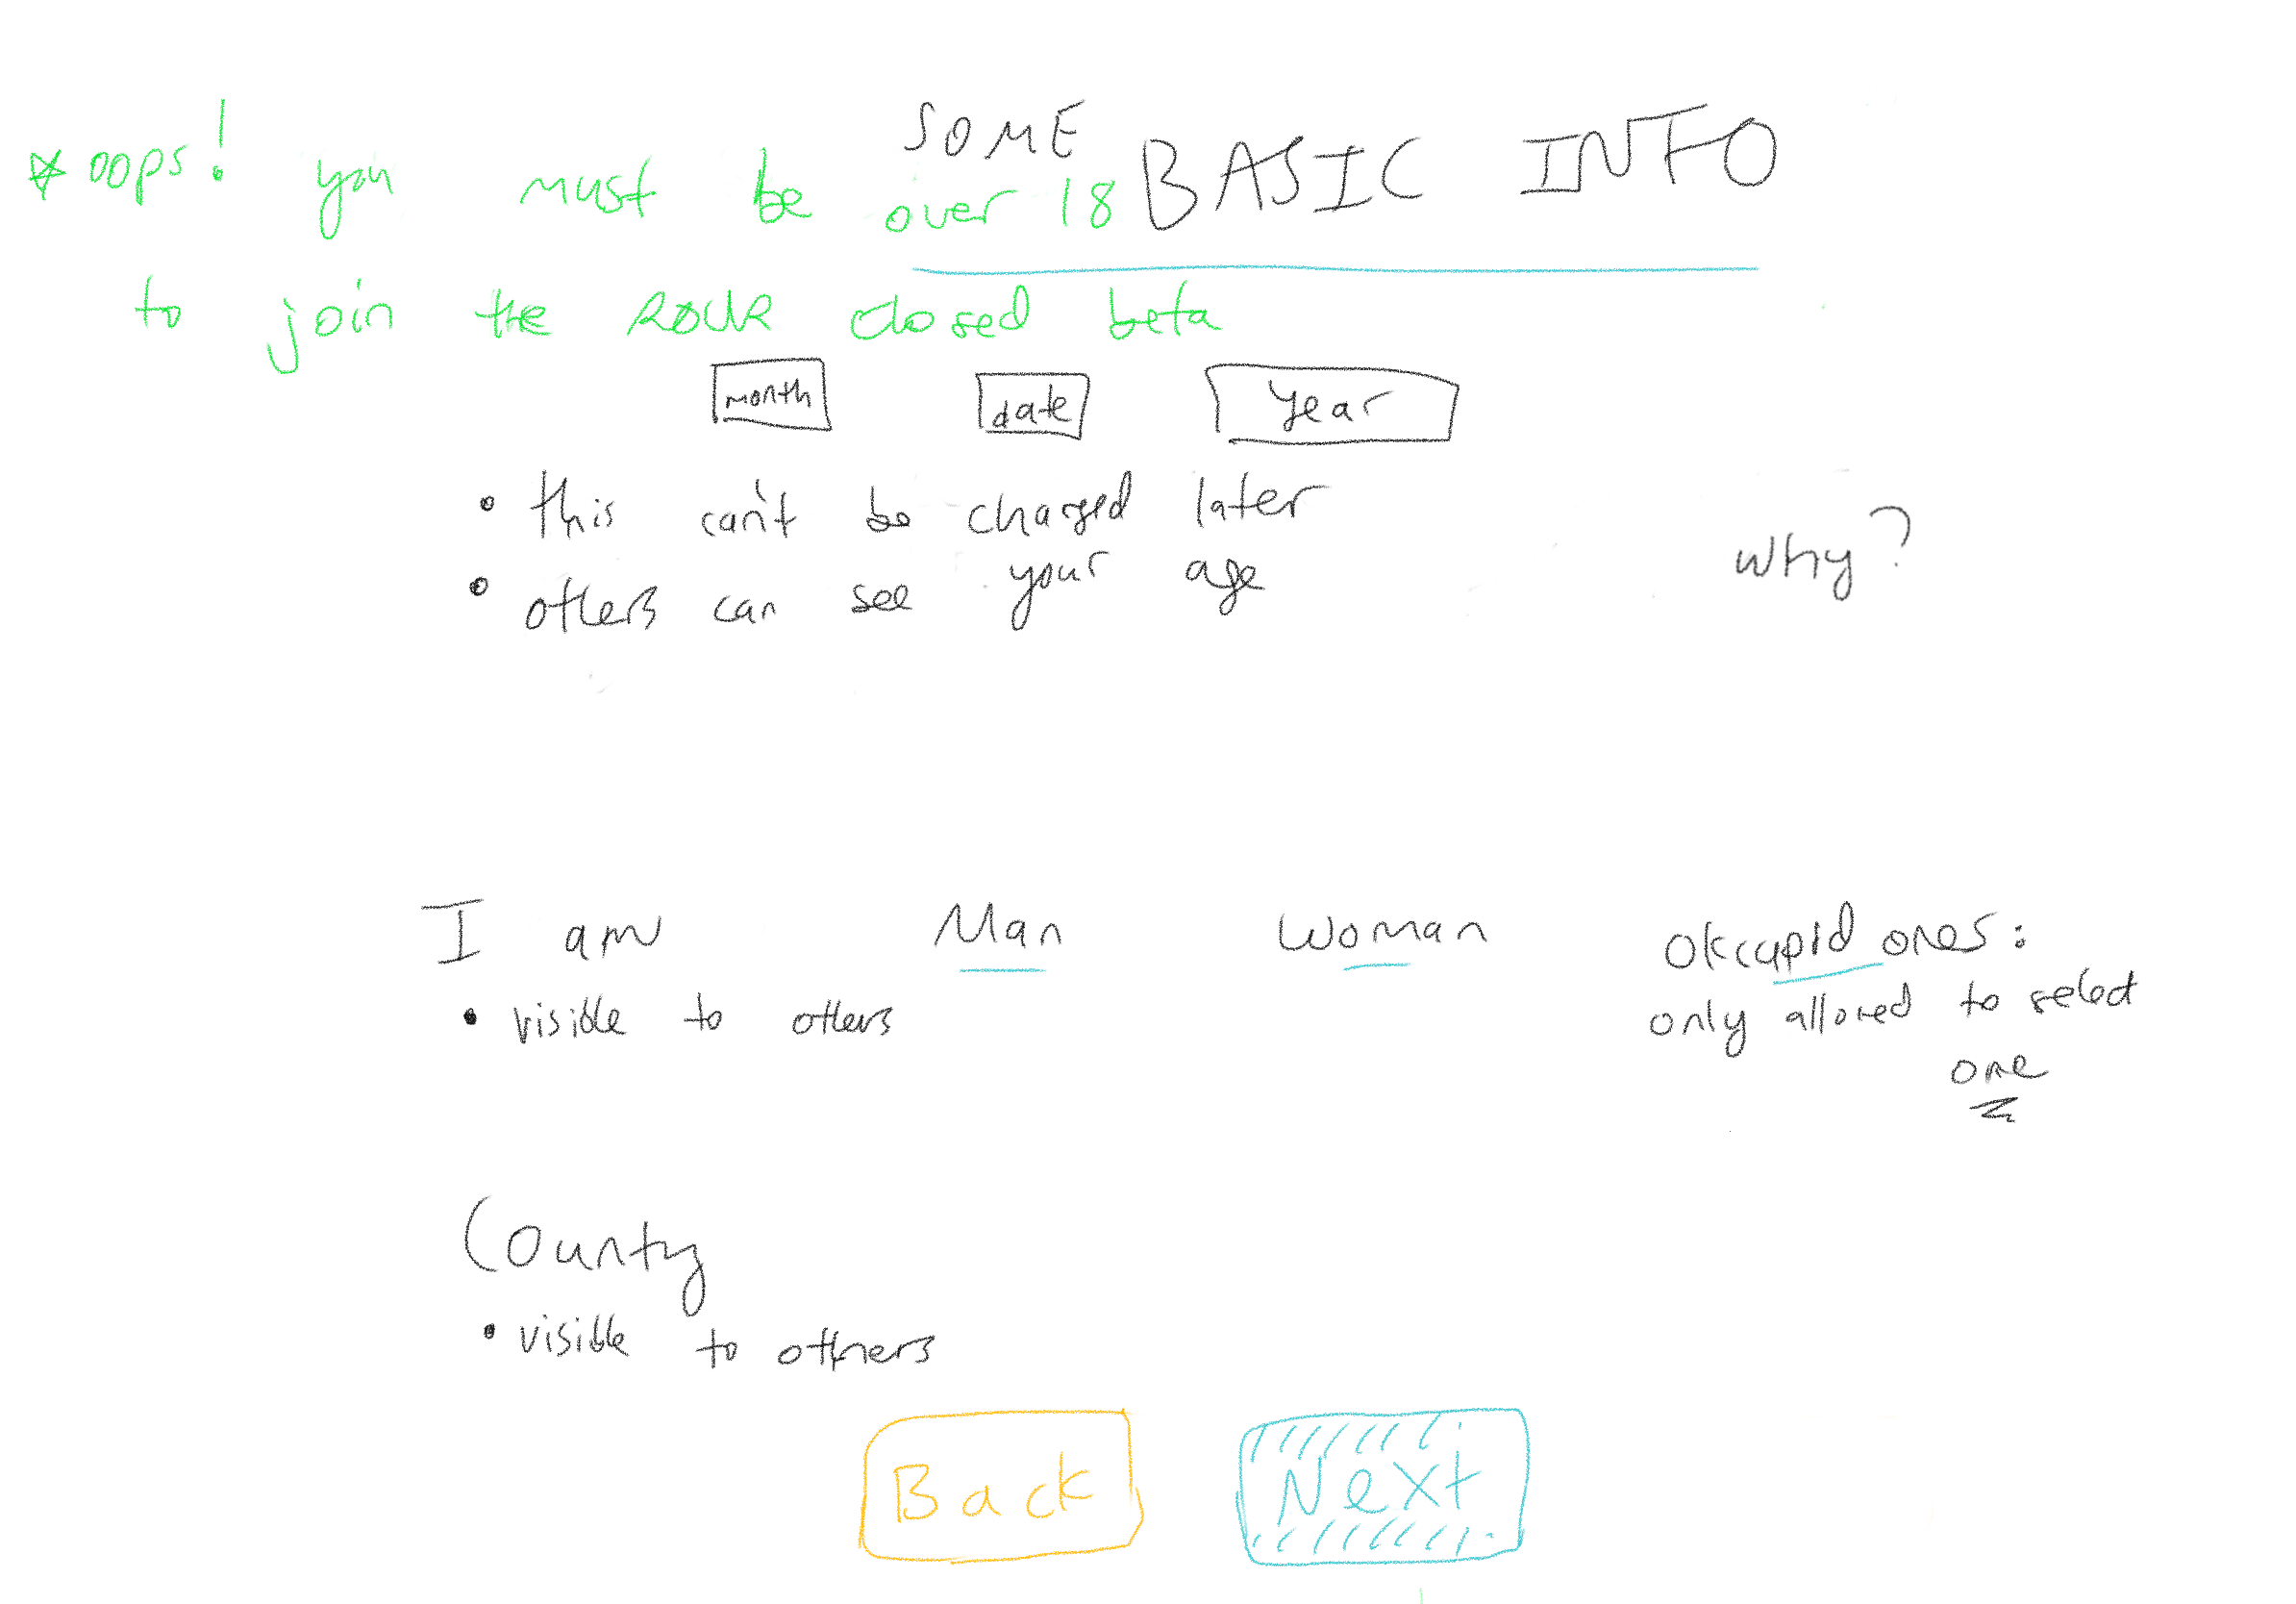 SOME BASIC INFO
* oops! you must be over 18
to join the ROUR closed beta
month date year
• this can't be changed later
• others can see your age
why?
I am Man Woman
okcupid ones:
only allowed to select
one
• visible to others
County
• visible to others
Back Next